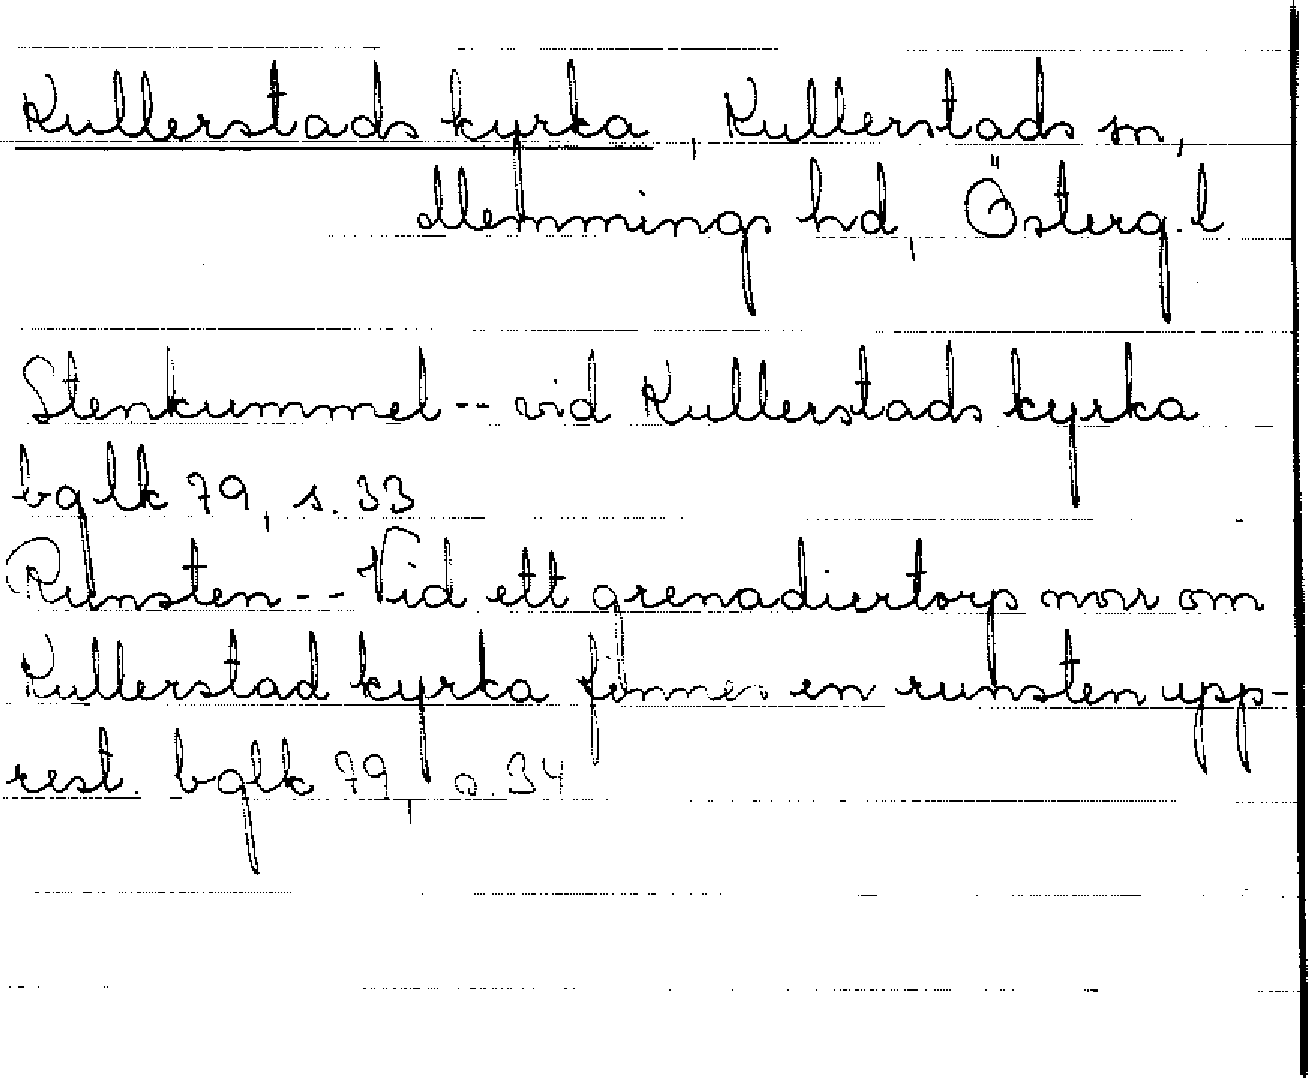 Kullerstads kyrka, Kullerstads sn,
Memmings hd, Österg. l
Stenkummel -- vid Kullerstads kyrka
bglk 79, s. 33
Runsten -- Vid ett grenadiertorp norr om
Kullerstad kyrka finnes en runsten upp-
rest. bglk 79, s. 34